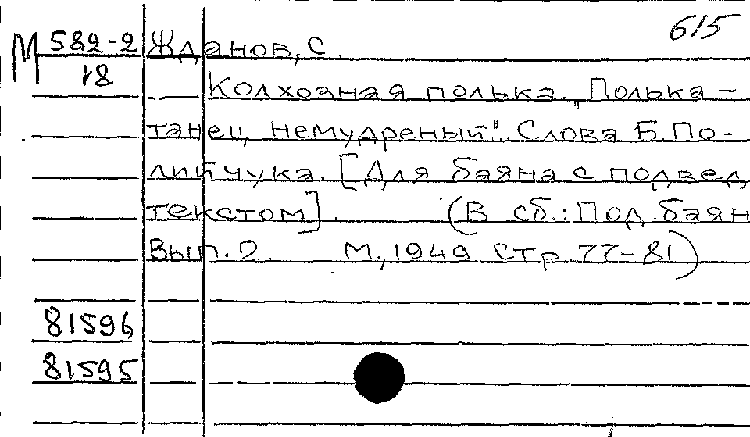 615
М 582-2 Жданов, С.
18
Колхозная полька. „Полька –
танец немудреный". Слова Б. По-
лийчука. [Для баяна с подвед
текстом]. (В сб.: Под баян
Вып. 2. М., 1949 стр. 77-81)
81596
81595